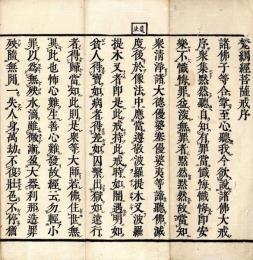 梵網經菩薩戒序
諸佛子等合掌至心聽我今欲說諸佛大戒
序衆集黙然聽自知有罪當懺悔懺悔即安
樂不懺悔罪益深無罪者黙然黙然故當知
衆清淨諸大德優婆塞優婆夷等諦聽佛滅
度後於像法中應當尊敬波羅提木叉波羅
提木叉者即是此戒持此戒時如闇遇明如
貧人得寶如病者得差如囚繫出獄如遠行
者得歸當知此則是衆等大師若佛住世無
異此也怖心難生善心難發故經云勿輕小
罪以為無殃水滴雖微漸盈大器刹那造罪
殃墮無間一失人身萬劫不復壯色不停猶